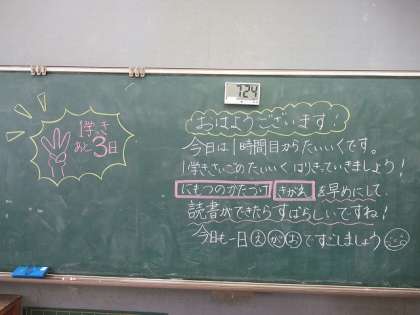 7:24
1学き
あと3日
おはようございます!
今日は1時間目からたいいくです。
1学きさいごのたいいくはりきっていきましょう!
にもつのかたづけ きがえ を早めにして
読書ができたらすばらしいですね!
今日も一日えがおですごしましょう